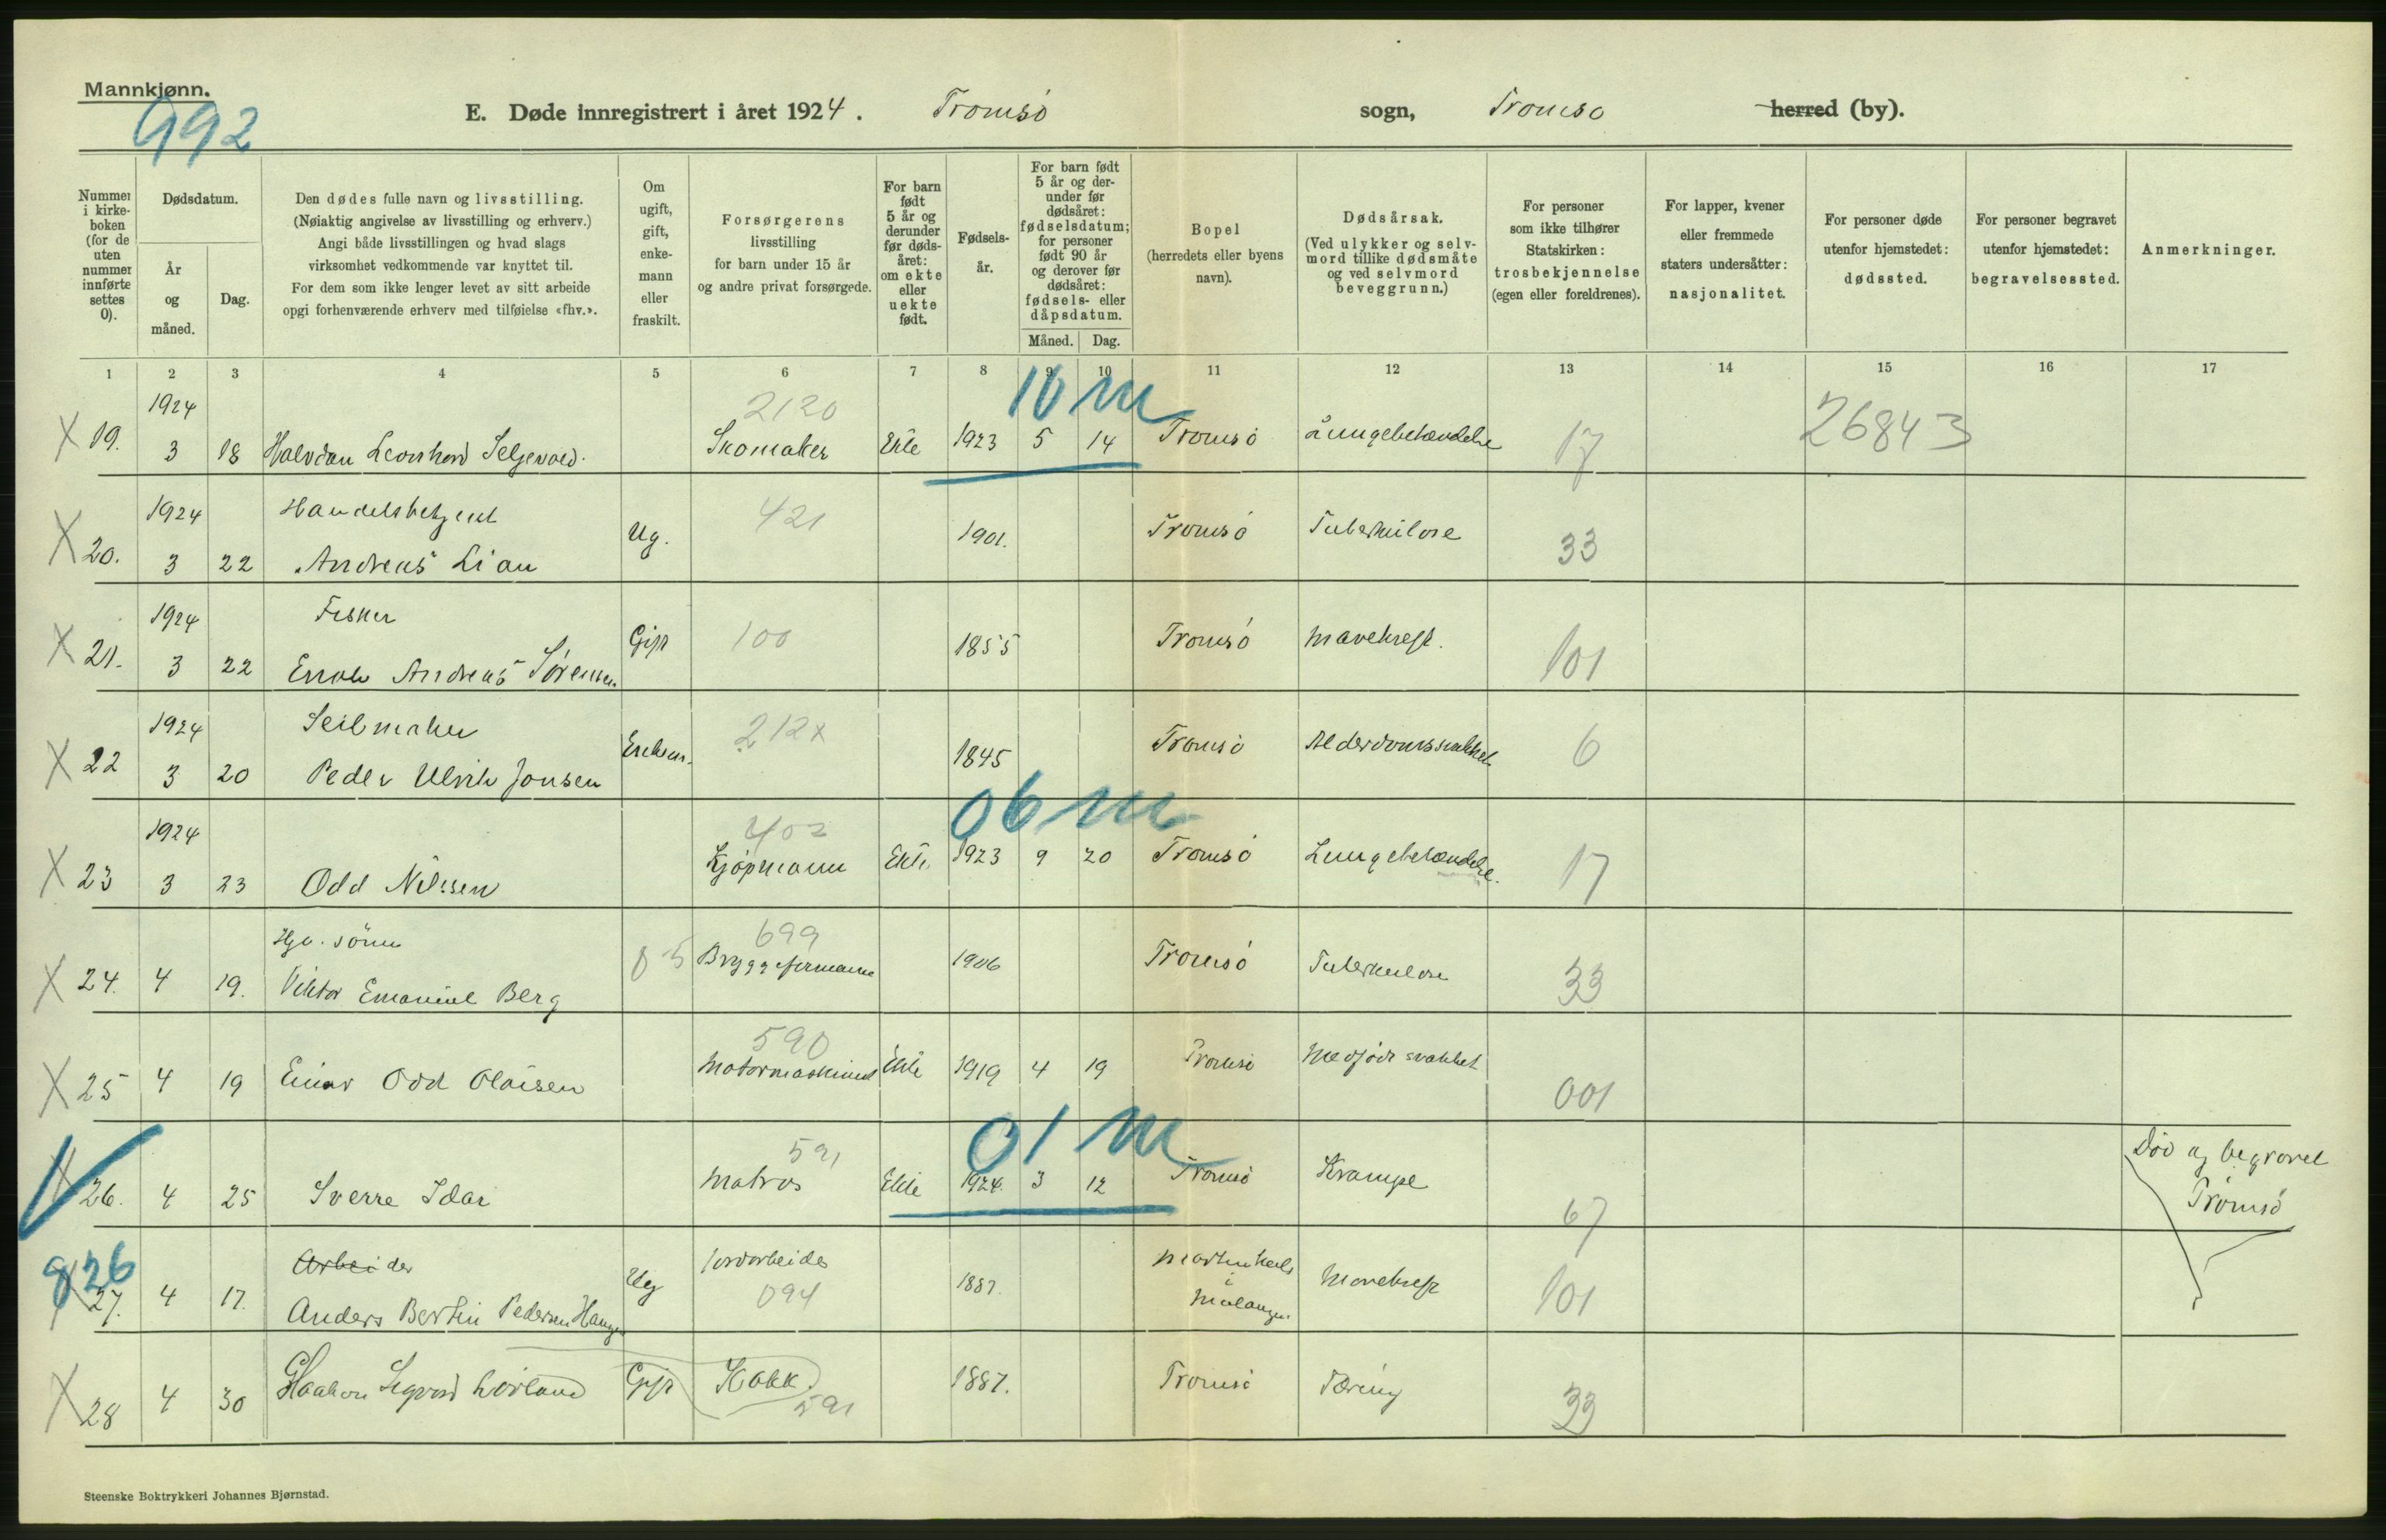 Mannkjønn.
992
E. Døde innregistrert i året 1924. Tromsö sogn, Tromsö herred (by).
Nummer i kirke-boken (for de uten nummer innførte settes 0).
Dødsdatum.
År og måned.
Dag.
Den dødes fulle navn og livsstilling.
(Nøiaktig angivelse av livsstilling og erhverv.)
Angi både livsstillingen og hvad slags
virksomhet vedkommende var knyttet til.
For dem som ikke lenger levet av sitt arbeide
opgi forhenværende erhverv med tilføielse «fhv.».
Om ugift, gift, enke-mann eller fraskilt.
Forsørgerens
livsstilling
for barn under 15 år
og andre privat forsørgede.
For barn født 5 år og derunder før døds-året: om ekte eller uekte født.
Fødsels-år.
For barn født 5 år og der-under før dødsåret: fødselsdatum; for personer født 90 år og derover før dødsåret: fødsels- eller dåpsdatum.
Måned. Dag.
Bopel
(herredets eller byens navn).
Dødsårsak.
(Ved ulykker og selv-mord tillike dødsmåte og ved selvmord beveggrunn.)
For personer som ikke tilhører Statskirken: trosbekjennelse (egen eller foreldrenes).
For lapper, kvener eller fremmede staters undersåtter: nasjonalitet.
For personer døde utenfor hjemstedet: dødssted.
For personer begravet utenfor hjemstedet: begravelsessted.
Anmerkninger.
1 2 3 4 5 6 7 8 9 10 11 12 13 14 15 16 17
1924 2120 10 m
X 19. 3 18 Halvdan Leonhard Seljevold. Skomaker Ekte 1923 5 14 Tromsö Lungebetændelse 17 26843
1924 Handelsbetjent 421
X 20. 3 22 Andreas Lian Ug. 1901. Tromsö Tuberkulose 33
1924 Fisker
X 21. 3 22 Andreas Sörensen Gift 100 1855 Tromsö Mavekreft. 101
1924 Seilmaker 212x
X 22 3 20 Peder Ulrik Jonsen Enkem. 1845 Tromsö Alderdomssvakhet 6
1924 402 06 m
X 23 3 23 Odd Nilssen Kjöpmann Ekte 1923 9 20 Tromsö Lungebetændelse. 17
Hjv. sönn 699
X 24. 4 19. Viktor Emanuel Berg 05 Bryggeformann 1906 Tromsö Tuberkulose 33
590
X 25 4 19 Einar Odd Olaisen Motormaskinist Ekte 1919 4 19 Tromsö Medfödt svakhet 001
591 01 m
X 26. 4 25 Sverre Idar Matros Ekte 1924. 3 12 Tromsö Krampe 67 Död og begravet
Tromsö
826
Arbeider Jordarbeider
X 27. 4 17. Anders Bertin Pedersen Ug 094 1887. i Malangen Mavekreft 101
X 28 4 30 Haakon Sigvard Gift Kokk. 591 1887. Tromsö Tæring 33
Steenske Boktrykkeri Johannes Bjørnstad.